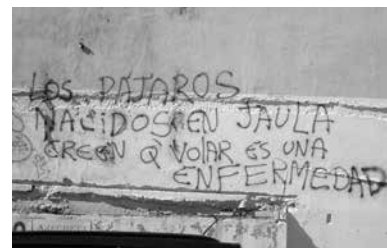 LOS PAJAROS
NACIDOS EN JAULA
CREEN Q' VOLAR ES UNA
ENFERMEDAD